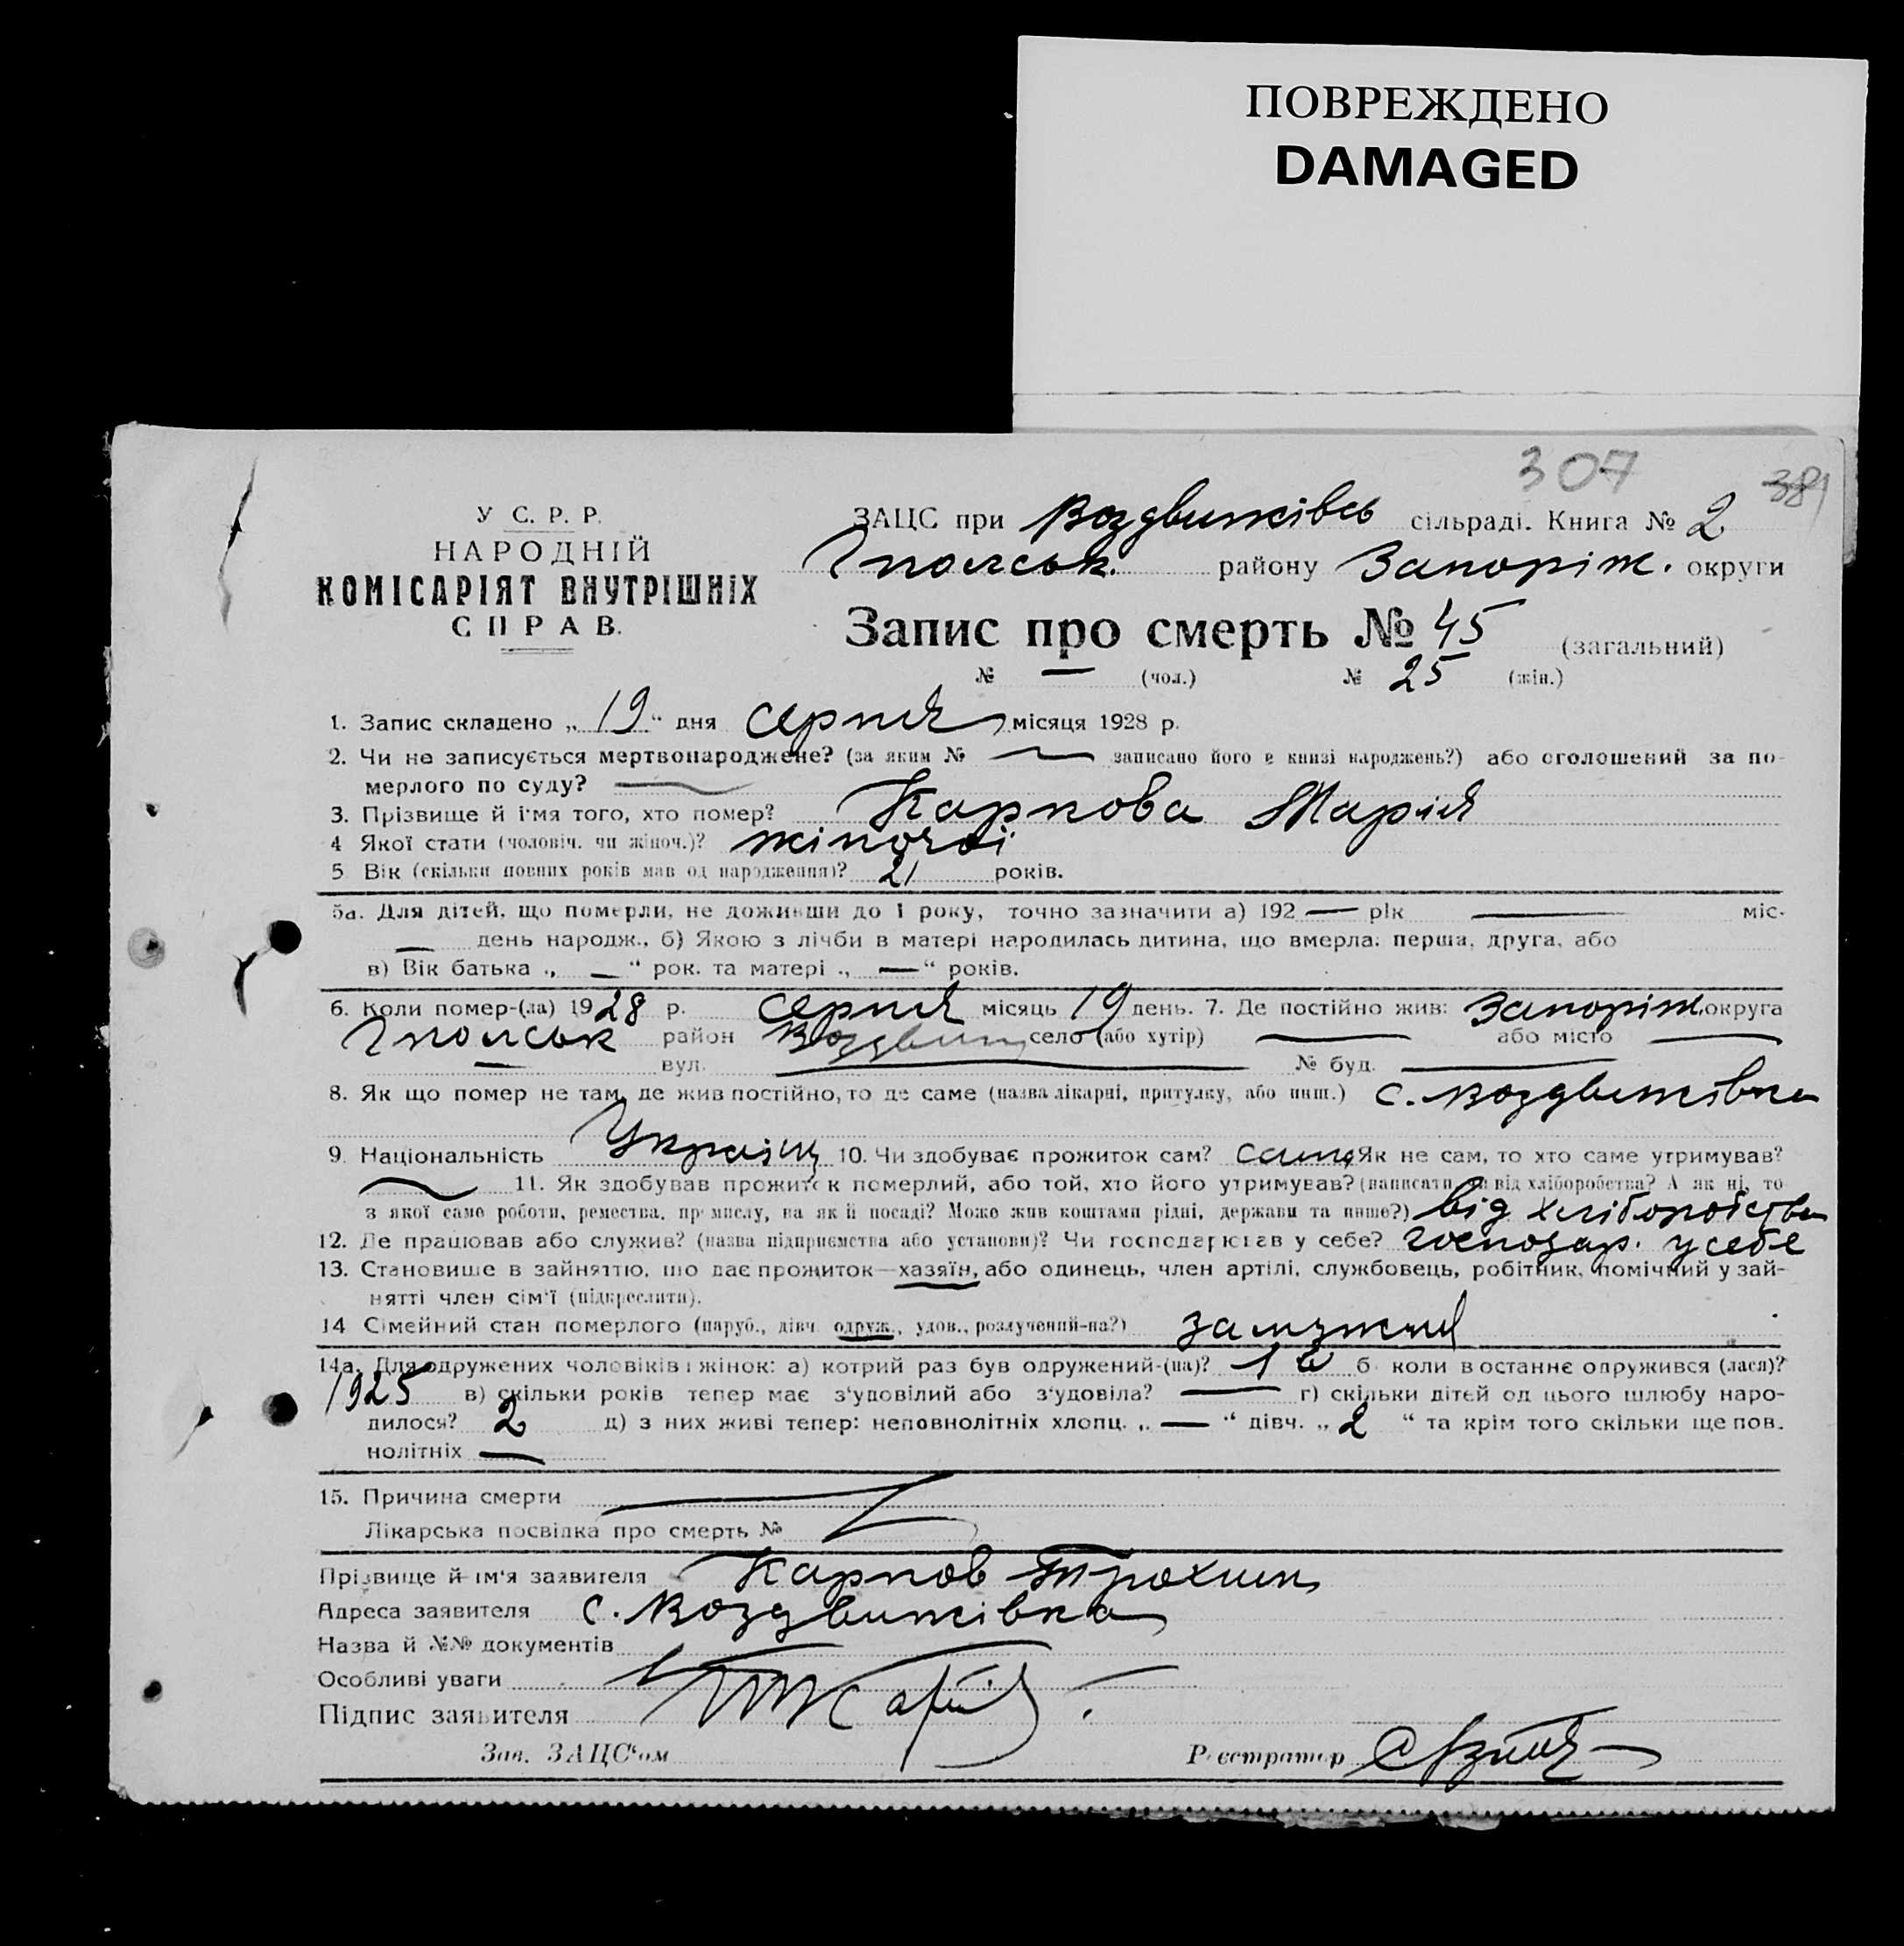 ПОВРЕЖДЕНО
DAMAGED
307
381
У С. Р. Р.
НАРОДНІЙ
КОМІСАРІЯТ ВНУТРІШНІХ
СПРАВ.
ЗАЦС при Воздвижівсь сільраді. Книга № 2
Гполськ. району Запоріж. округи
Запис про смерть № 45 (загальний)
№ — (чол.) № 25 (жін.)
1. Запис складено „19“ дня серпня місяця 1928 р.
2. Чи не записується мертвонароджене? (за яким № — записано його в книзі народжень?) або оголошений за по-
мерлого по суду? —
3. Прізвище й ім'я того, хто помер? Карпова Марія
4 Якої стати (чоловіч. чи жіноч.)? жіночої
5 Вік (скільки повних років мав од народження)? 21 років.
5а. Для дітей, що померли, не доживши до 1 року, точно зазначити а) 192 — рік — міс.
— день народж., б) Якою з лічби в матері народилась дитина, що вмерла: перша, друга, або
в) Вік батька „ — “ рок. та матері „ — “ років.
6. Коли помер-(ла) 1928 р. серпня місяць 19 день. 7. Де постійно жив: Запоріж. округа
Гполськ район Воздвиж село (або хутір) — або місто —
— вул. — № буд. —
8. Як що помер не там, де жив постійно, то де саме (назва лікарні, притулку, або инш.) с. Воздвижівка
9. Національність Україн 10. Чи здобуває прожиток сам? сама Як не сам, то хто саме утримував?
— 11. Як здобував прожиток померлий, або той, хто його утримував? (написати чи від хліборобства? А як ні, то
з якої саме роботи, ремества, промислу, на якій посаді? Може жив коштами рідні, держави та инше?) від хліборобства
12. Де працював або служив? (назва підприємства або установи)? Чи господарював у себе? господар. у себе
13. Становище в зайняттю, що дає прожиток—хазяїн, або одинець, член артілі, службовець, робітник, помічний у зай-
нятті член сім'ї (підкреслити).
14 Сімейний стан померлого (паруб., дівч. одруж., удов., розлучений-на?) замужня
14а. Для одружених чоловіків і жінок: а) котрий раз був одружений-(на)? 1й б коли в останнє одружився (лася)?
1925 в) скільки років тепер має з'удовілий або з'удовіла? — г) скільки дітей од цього шлюбу наро-
дилося? 2 д) з них живі тепер: неповнолітніх хлопц. „ — “ дівч. „ 2 “ та крім того скільки ще пов.
нолітніх —
15. Причина смерти —
Лікарська посвідка про смерть №
Прізвище й ім'я заявителя Карпов Трохим
Адреса заявителя с. Воздвижівка
Назва й №№ документів
Особливі уваги
Підпис заявителя
Зав. ЗАЦС'ом Реєстратор